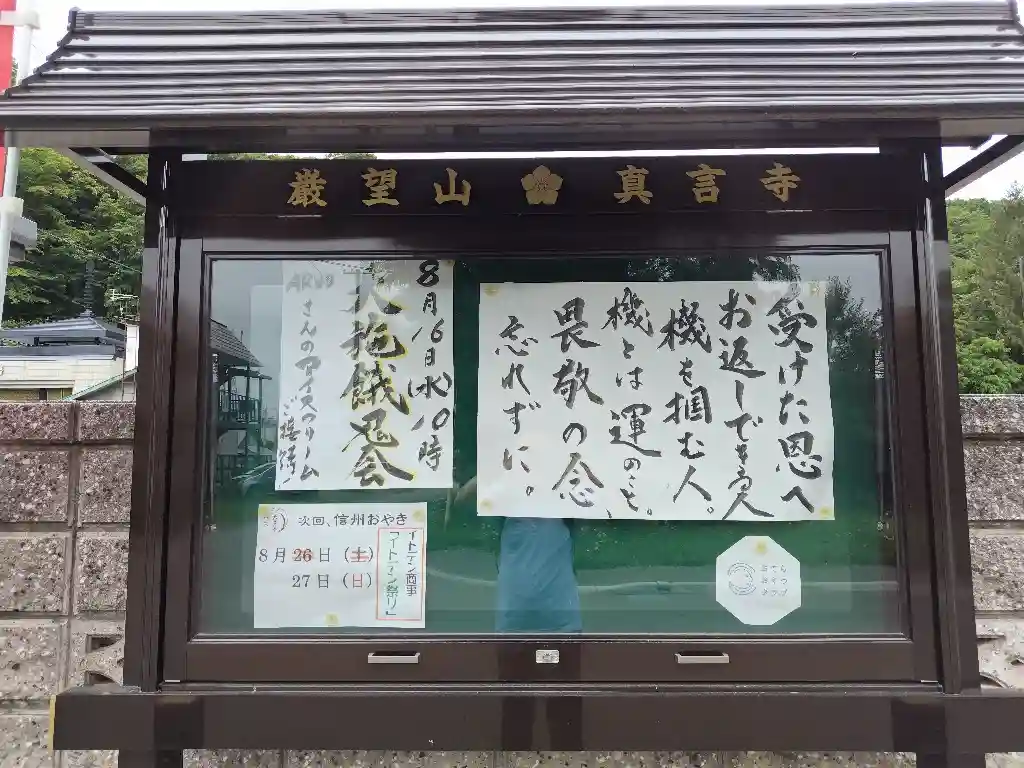 厳望山 真言寺
受けた恩へ
お返しできる人
機を掴む人。
機とは運のこと。
畏敬の念、
忘れずに。
8月16日(水)10時
大施餓鬼会
さんのアイスクリーム
ご接待!
次回、信州おやき
8月26日(土)
27日(日)
イトテン商事
「イトテン祭り」
おてら
おやつ
クラブ